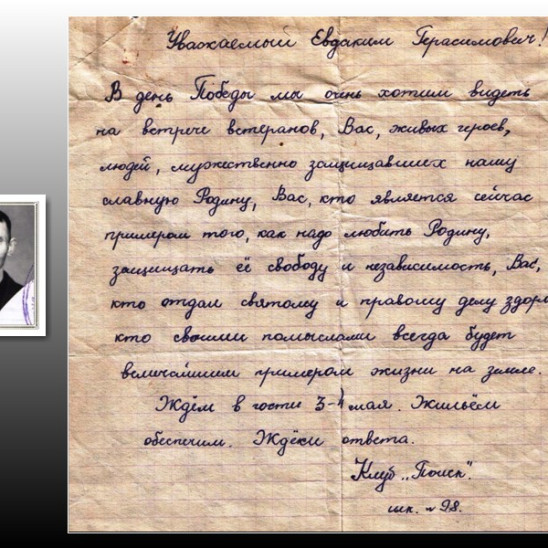 Уважаемый Евдаким Герасимович!
В день Победы мы очень хотим видеть
на встрече ветеранов, Вас, живых героев,
людей, мужественно защищавших нашу
славную Родину, Вас, кто является сейчас
примером того, как надо любить Родину,
защищать её свободу и независимость, Вас,
кто отдал святому и правому делу здор
кто своими помыслами всегда будет
величайшим примером жизни на земле.
Ждём в гости 3-4 мая. Жильём
обеспечим. Ждём ответа.
Клуб „Поиск".
шк. № 98.